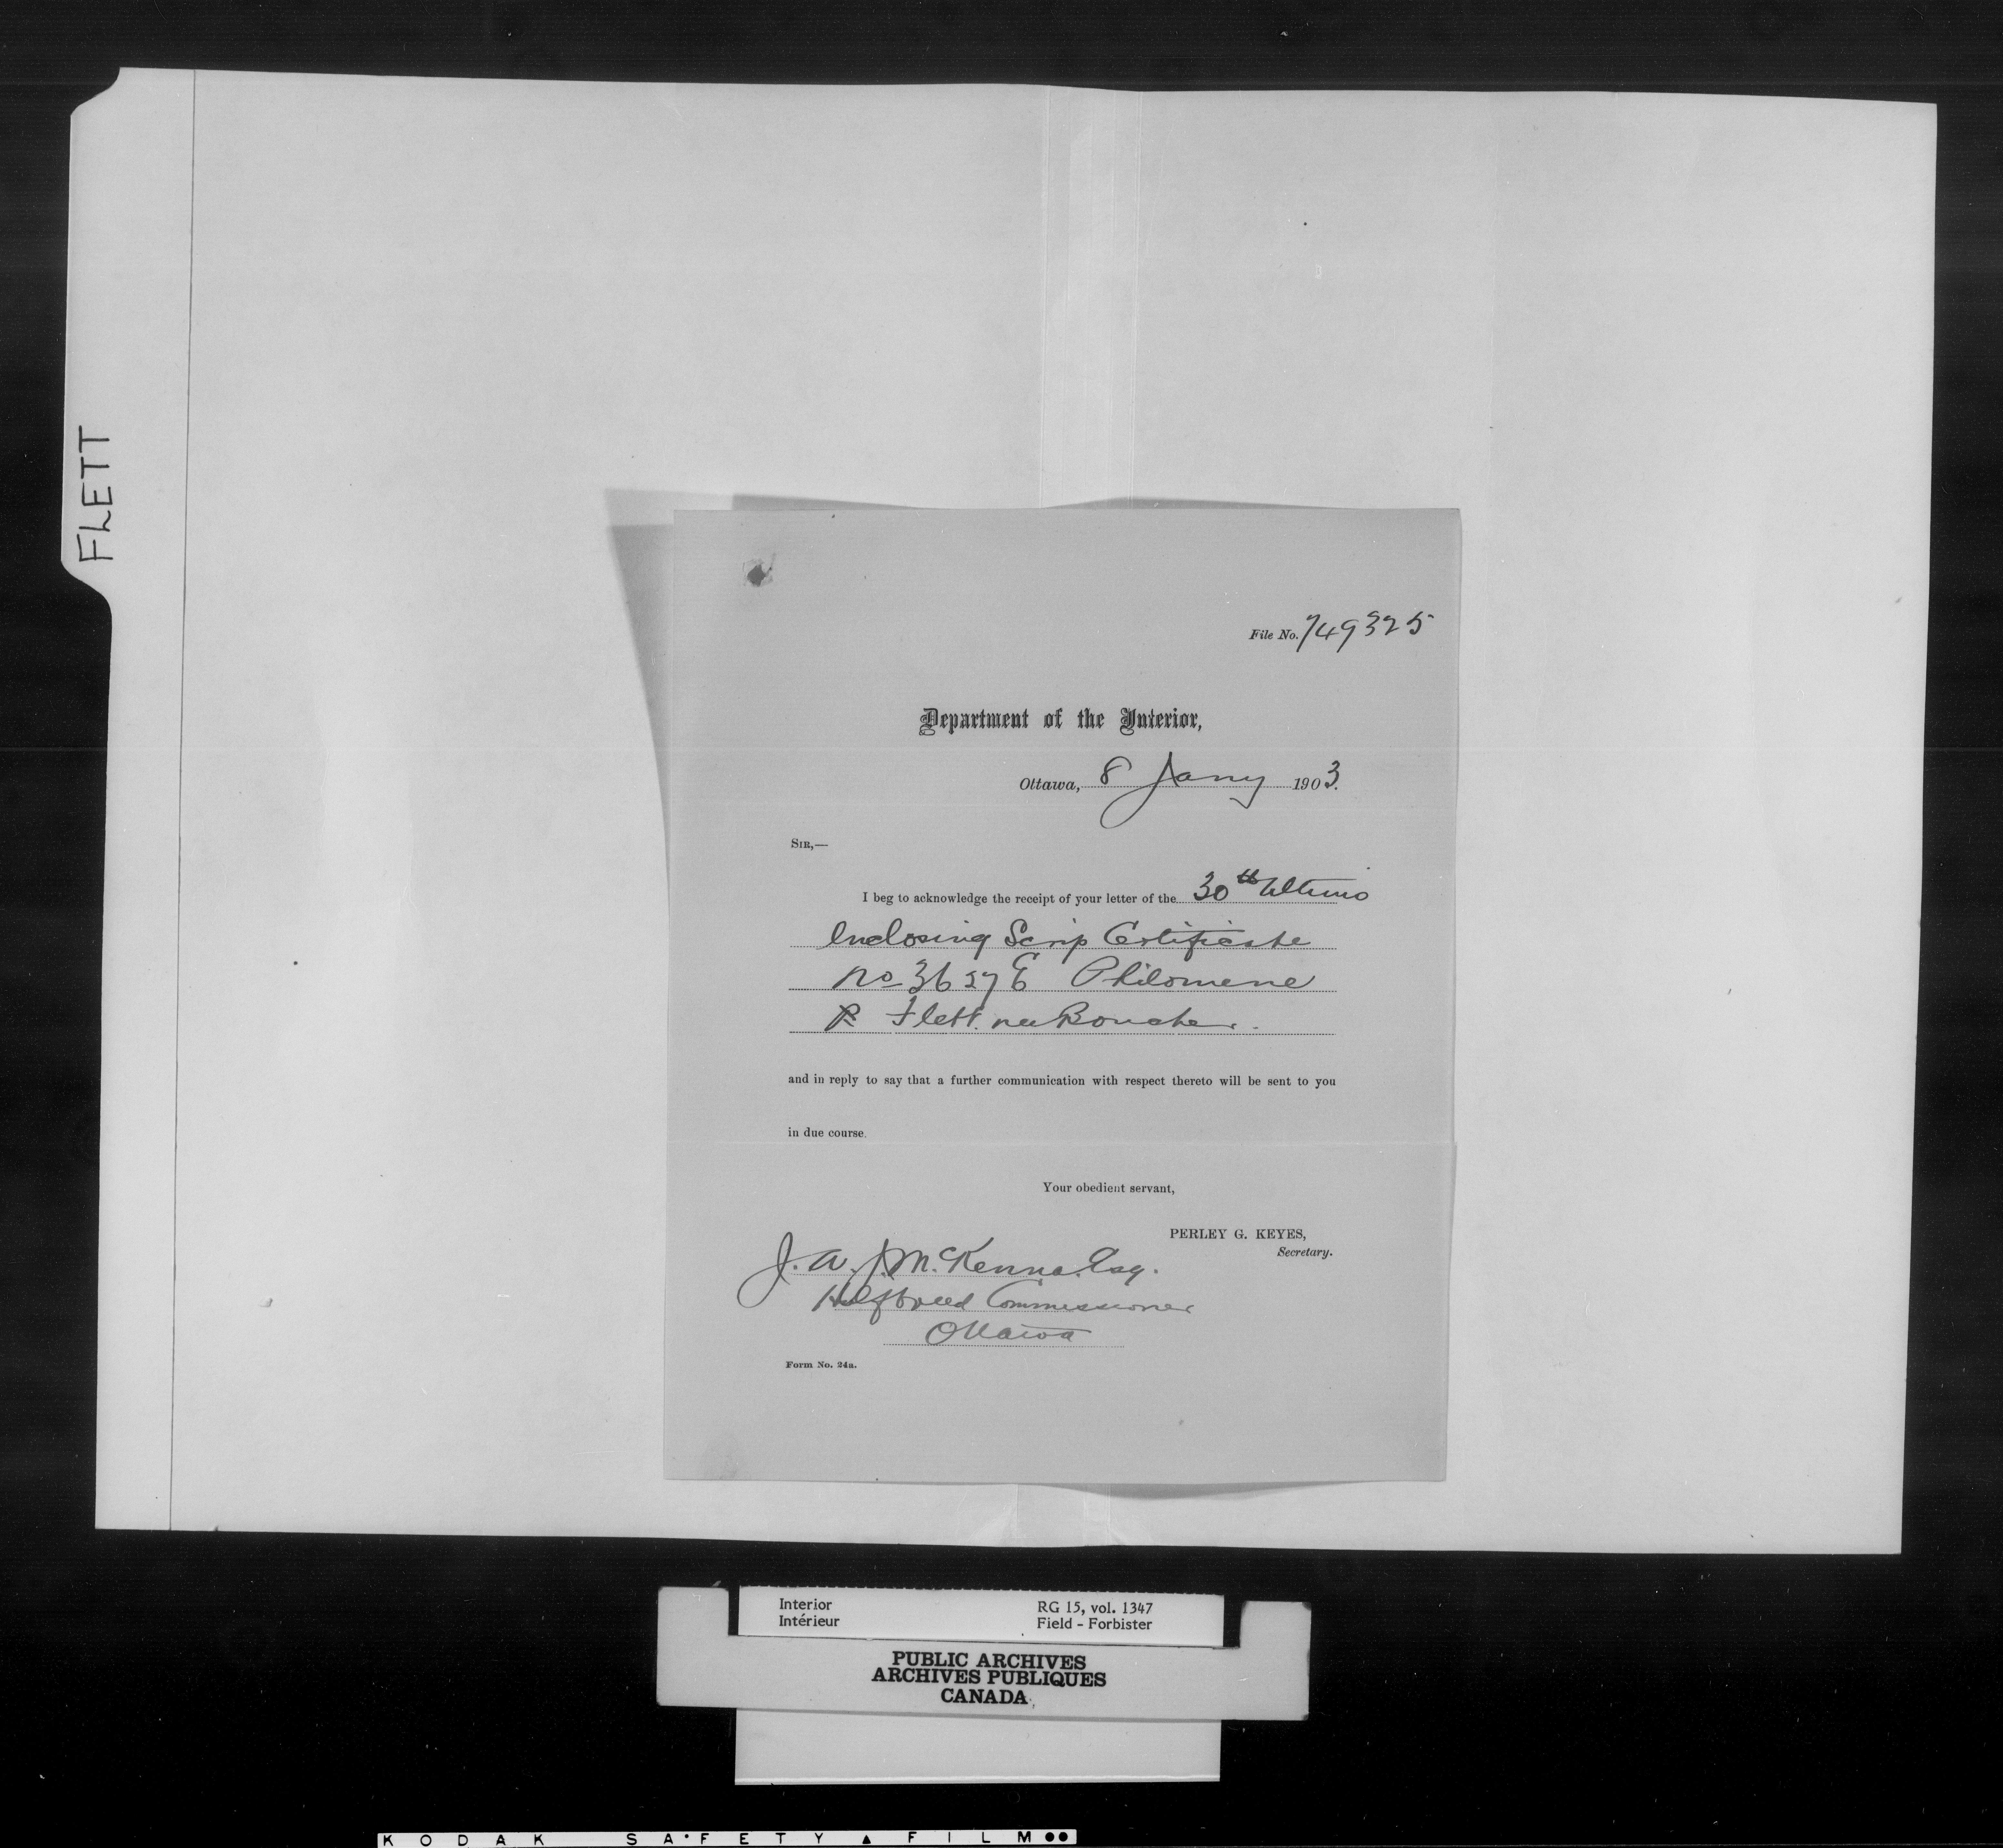 FLETT
File No. 749325
Department of the Interior,
Ottawa, 8 Jany 1903.
SIR,—
I beg to acknowledge the receipt of your letter of the 30th Ultimo
Enclosing Scrip Certificate
No 3627 E Philomene
R Flett. nee Boucher.
and in reply to say that a further communication with respect thereto will be sent to you
in due course.
Your obedient servant,
PERLEY G. KEYES,
Secretary.
J. A. J. McKenna. Esq.
Halfbreed Commissioner
Ottawa
Form No. 24a.
Interior
Intérieur
RG 15, vol. 1347
Field - Forbister
PUBLIC ARCHIVES
ARCHIVES PUBLIQUES
CANADA
KODAK SAFETY FILM